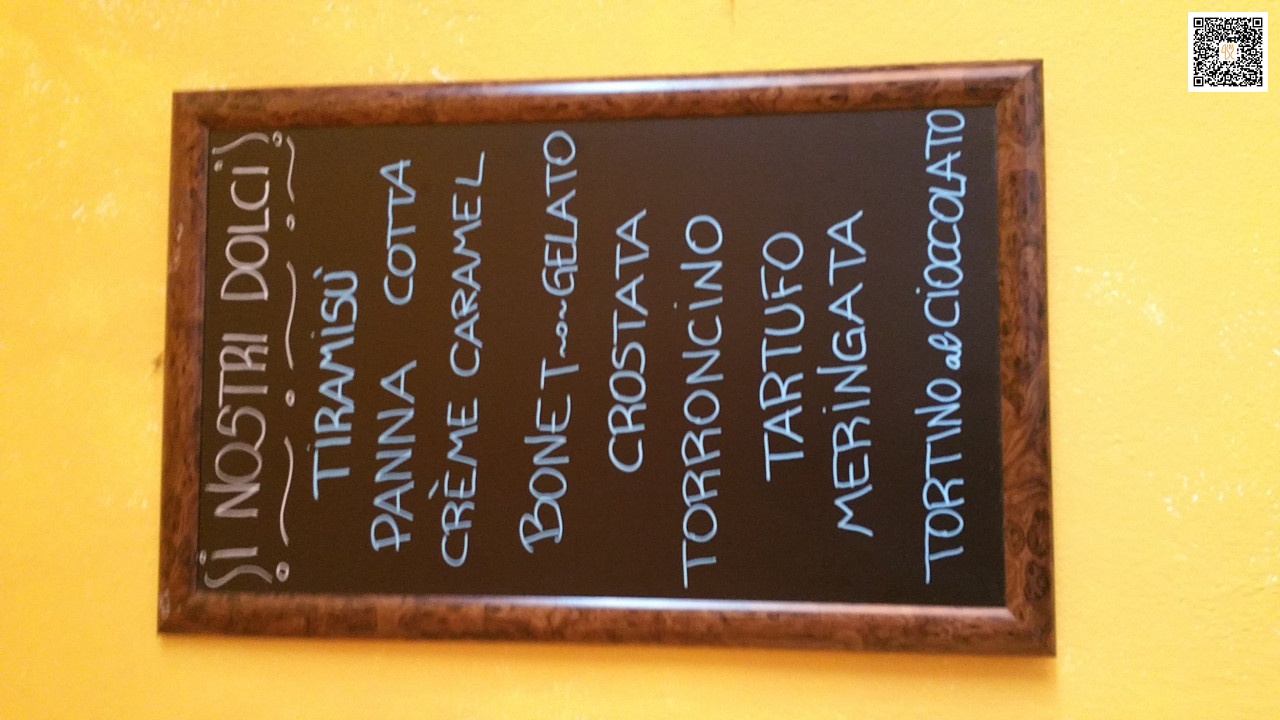 I NOSTRI DOLCI
TIRAMISÙ
PANNA COTTA
CRÈME CARAMEL
BONET non GELATO
CROSTATA
TORRONCINO
TARTUFO
MERINGATA
TORTINO al CIOCCOLATO